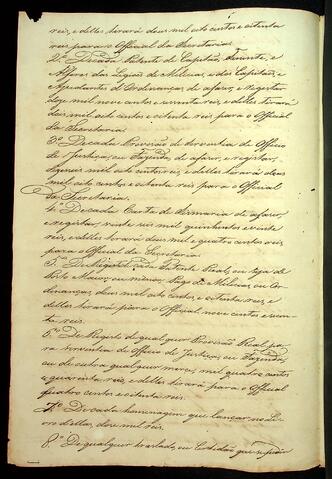 reis, e delles tirará dous mil oito centos e oitenta
reis para o Official da Secretaria.
2.º De cada Patente de Capitão, Tenente, e
Alferes das Legiões de Milicias, e dos Capitães, e
Ajudantes d'Ordenanças de a fazer, e registar
doze mil nove centos e sessenta reis, e delles tirará
dous mil oito centos e oitenta reis para o Official
da Secretaria.
3.º De cada Provisão de Serventia de Officio
de Justiça, ou Fazenda de a fazer, e registar,
mil oito centos reis, e delles tirará dous
mil oito centos e oitenta reis para o Official
da Secretaria.
4.º De cada Carta de Sesmaria de a fazer,
e registar, vinte seis mil quinhentos e vinte
reis, e delles tirará dous mil e quatro centos reis
para o Official da Secretaria.
5.º De Registo de cada Patente Real, ou seja de
Posto Maior, ou menor, Pago de Milicias, ou Or-
denanças, dous mil oito centos e oitenta reis, e
delles tirará para o Official nove centos e sessen-
ta reis.
6.º De Registo de qualquer Provisão Real pa-
ra Serventia de Officio de Justiça, ou Fazenda,
ou de outra qualquer merce, mil quatro centos
e quarenta reis, e delles tirará para o Official
quatro centos e oitenta reis.
7.º De cada homenagem que lançar no Li-
vro dellas, dous mil reis.
8.º De qualquer traslado, ou Certidão que se